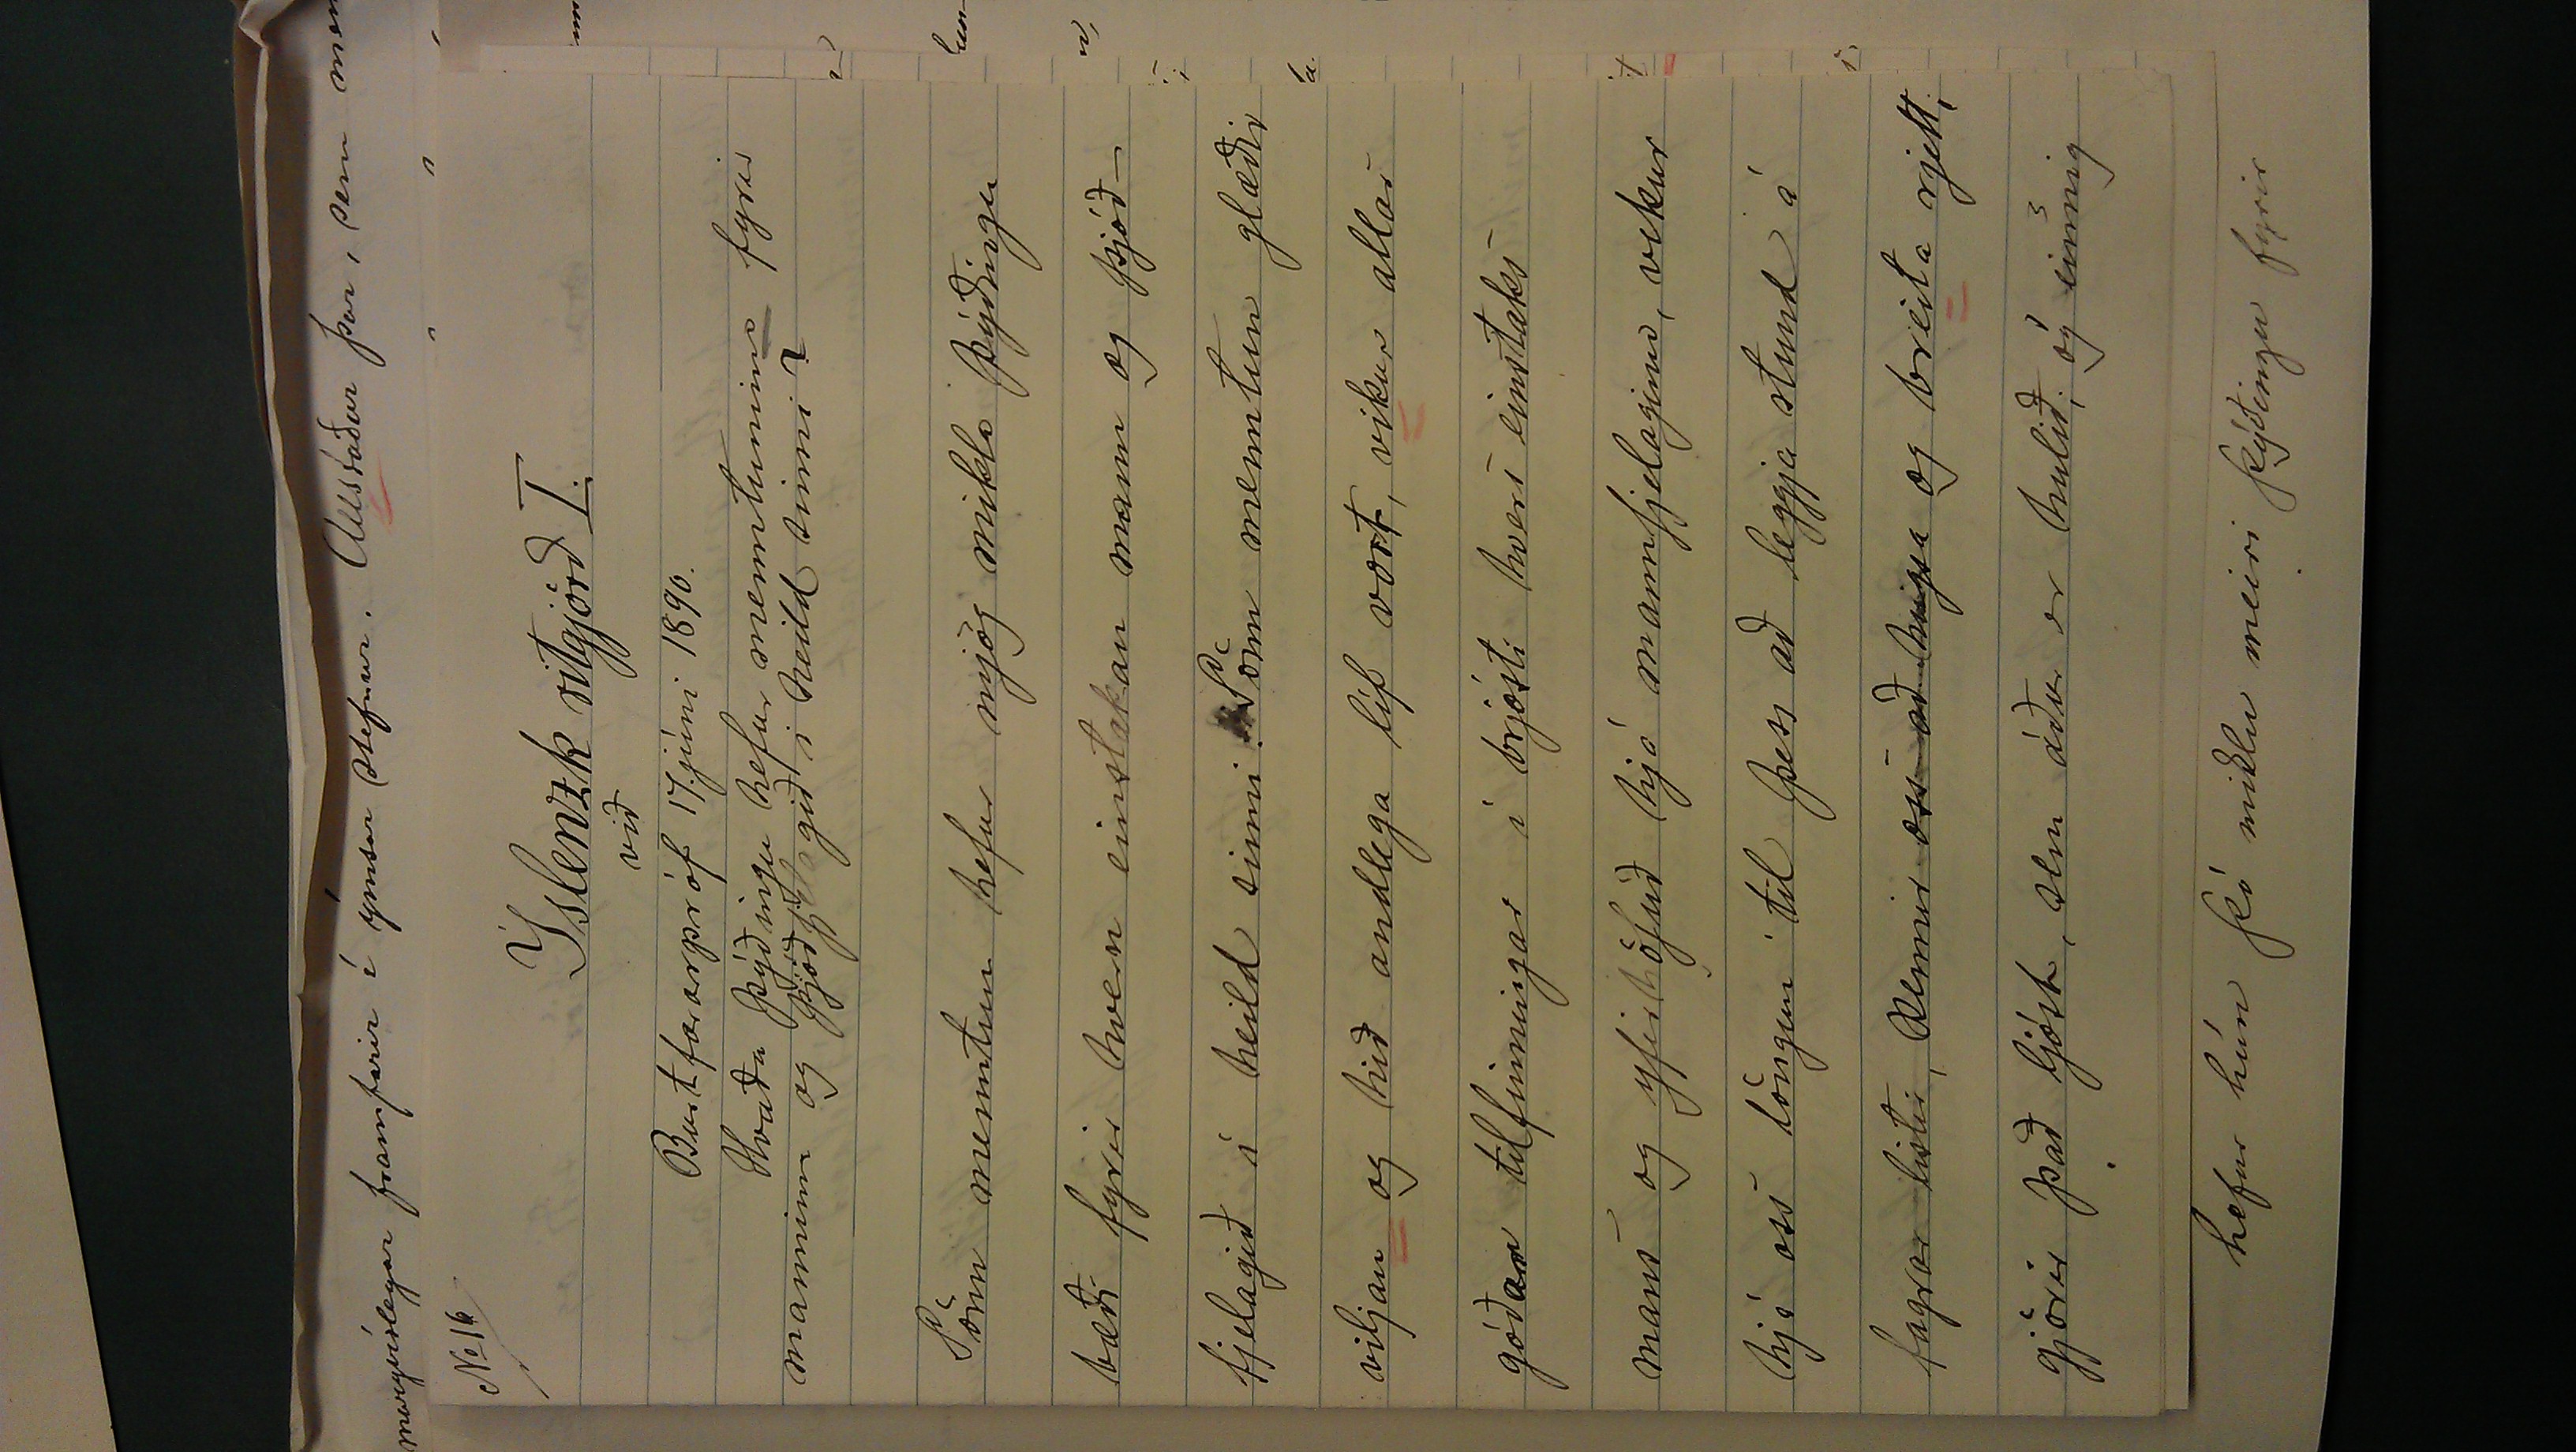 margvíslegar framfarir í ýmsar stefnur. Allstaðar þar, sem men
No 16
Íslenzk ritgjörð I.
við
Burtfararpróf 17. júni 1890.
Hvaða þýðingu hefur menntunin fyrir
manninn og þjóðfjelagið í heild sinni?
Sönn menntun hefur mjög mikla þýðingu
bæði fyrir hvern einstakan mann og þjóð-
fjelagið í heild sinni. Sönn menntun glæðir
viljan og hið andlega líf vort, vikur allar
góðar tilfinningar í brjósti hvers einstaks
mans og yfir höfuð hjá mannfjelaginu, vekur
hjá oss löngun til þess að leggja stund á
fagrar listir, kennir oss að hugsa og breita rjett,
gjörir það ljóst, sem áður er hulið, og einnig
hefur hún þó miklu meiri þýðingu fyrir